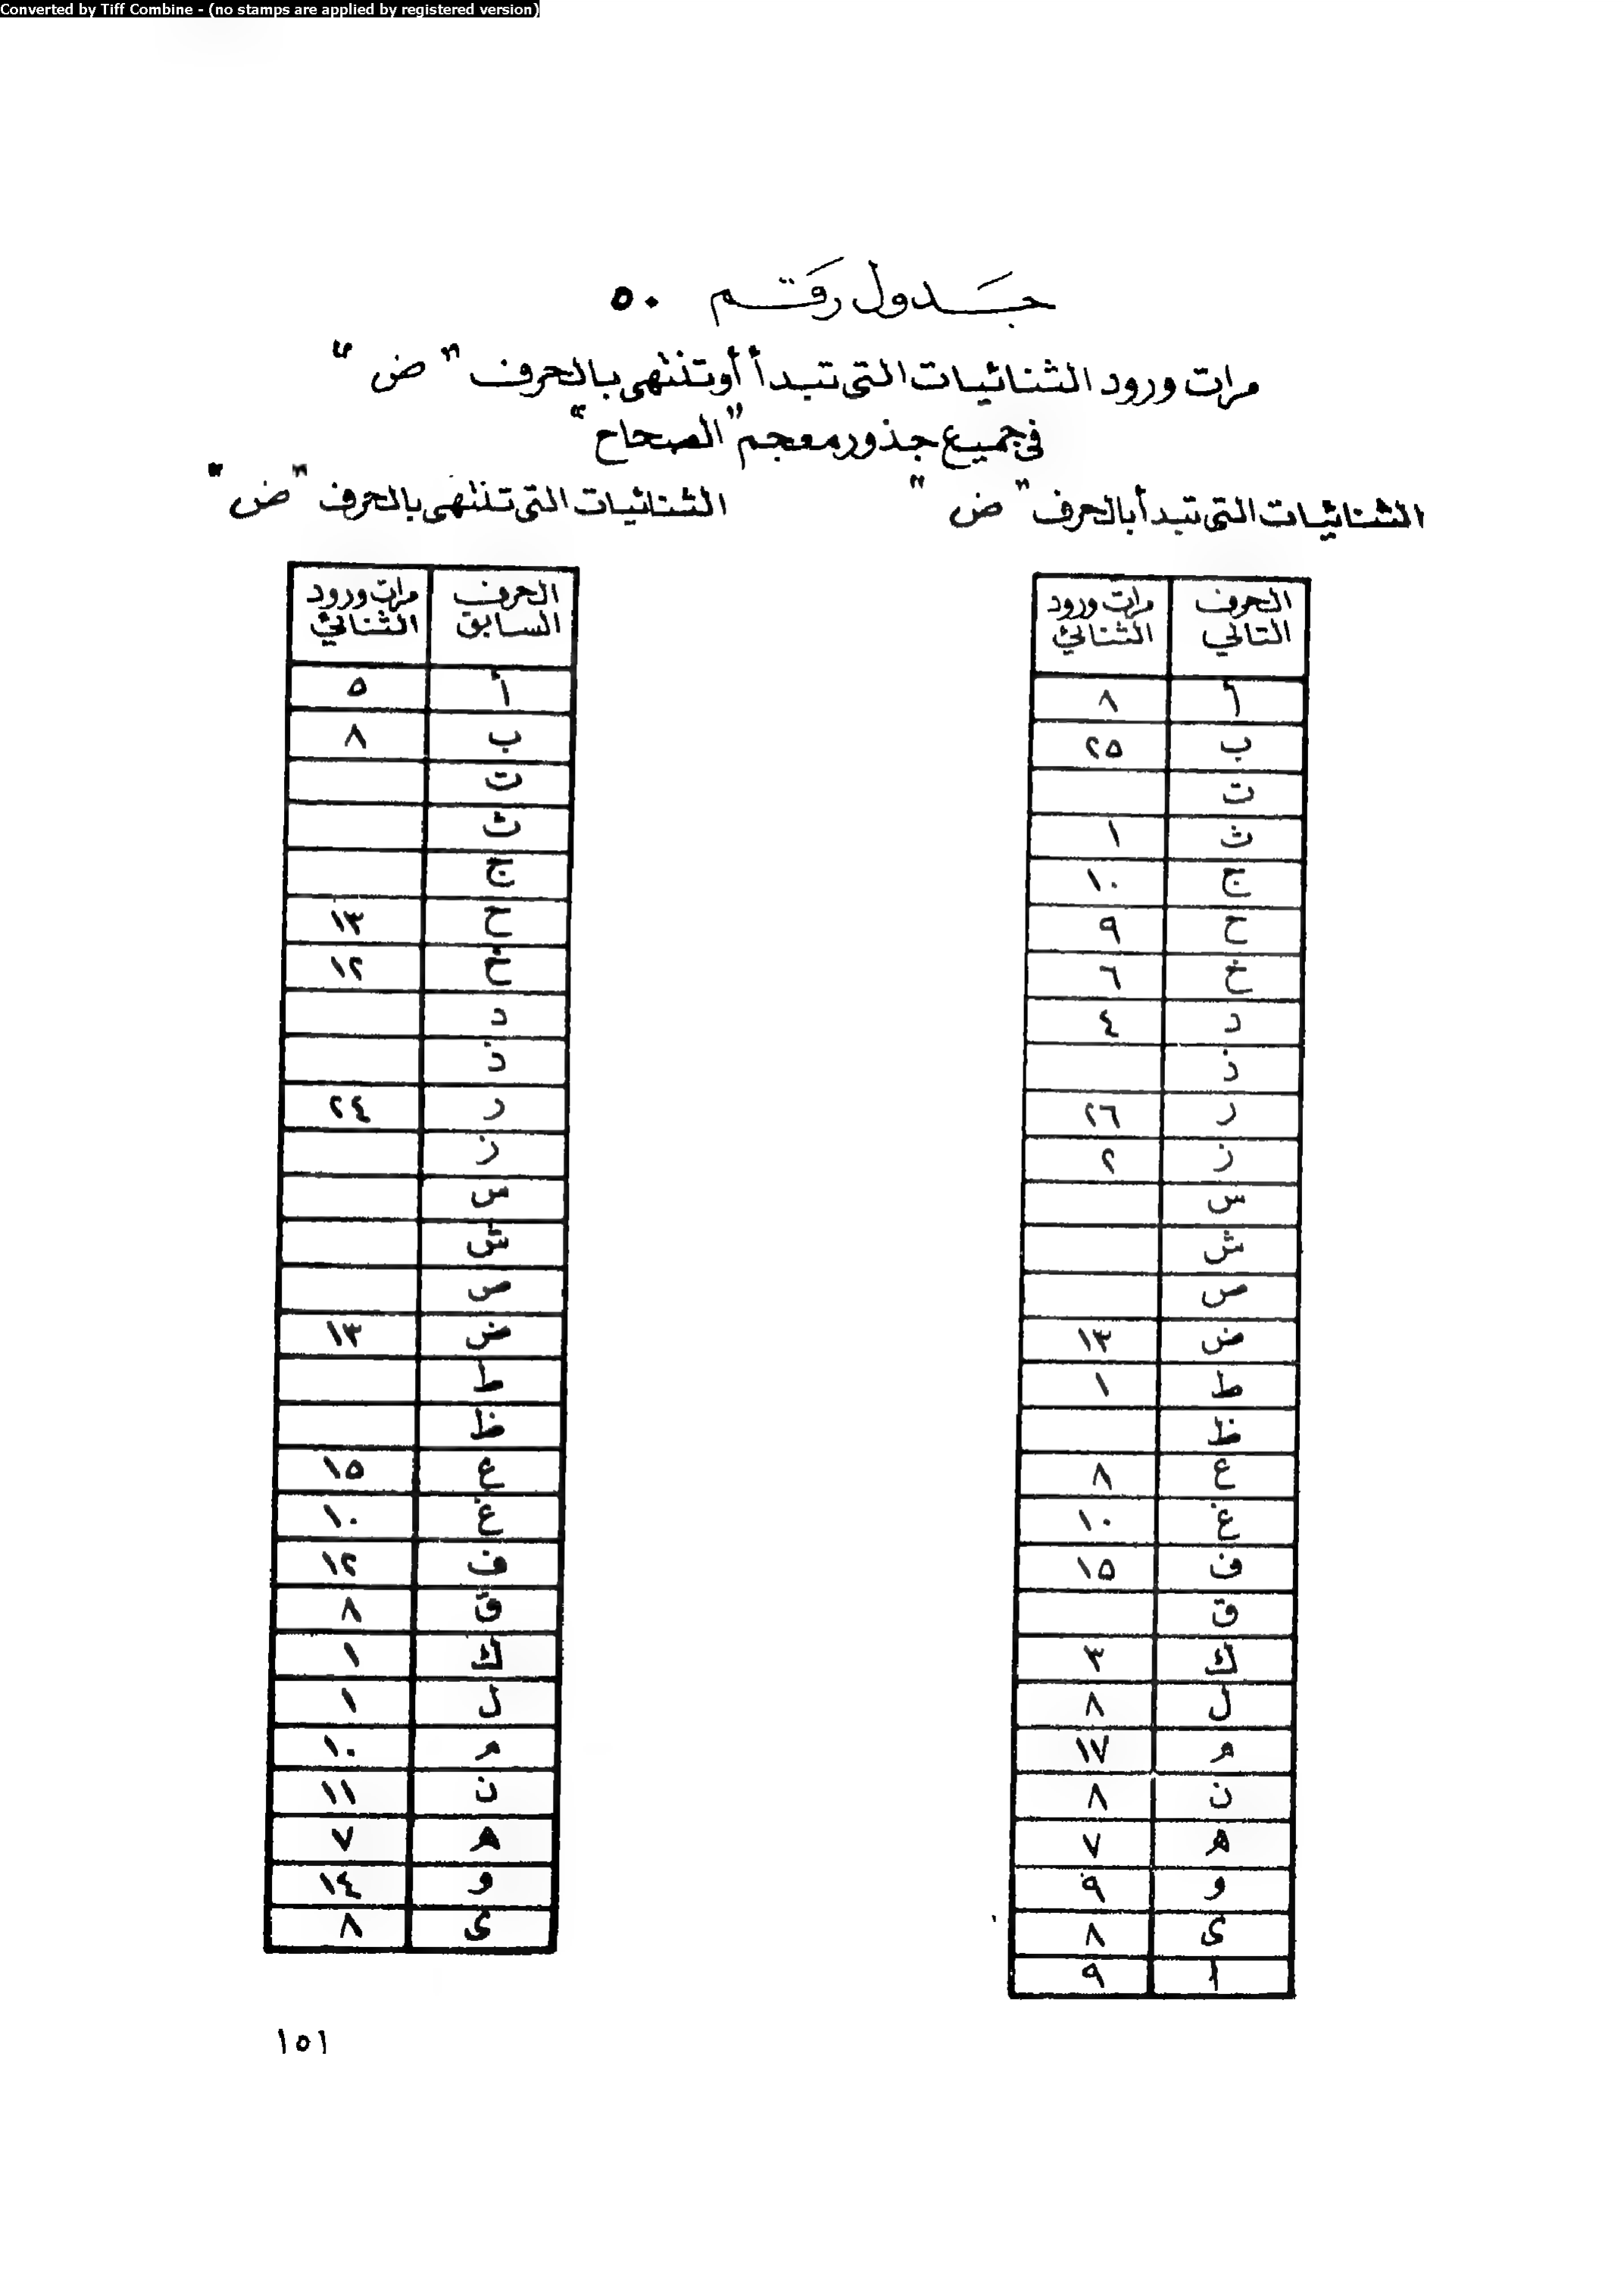 Converted by Tiff Combine - (no stamps are applied by registered version)
جَدول رَقم ٥٠
مرات ورود الثنائيات التى تبدأ أو تنتهى بالحرف "ض"
فى جميع جذور معجم "الصحاح"
الثنائيات التى تبدأ بالحرف "ض"
الحرف التالي مرات ورود الثنائي
أ ٨
ب ٢٥
ت
ث ١
ج ١٠
ح ٩
خ ٦
د ٤
ذ
ر ٢٦
ز ٢
س
ش
ص
ض ١٣
ط ١
ظ
ع ٨
غ ١٠
ف ١٥
ق
ك ٣
ل ٨
م ١٧
ن ٨
ه ٧
و ٩
ى ٨
ا ٩
الثنائيات التى تنتهى بالحرف "ض"
الحرف السابق مرات ورود الثنائي
أ ٥
ب ٨
ت
ث
ج
ح ١٣
خ ١٢
د
ذ
ر ٢٤
ز
س
ش
ص
ض ١٣
ط
ظ
ع ١٥
غ ١٠
ف ١٢
ق ٨
ك ١
ل ١
م ١٠
ن ١١
ه ٧
و ١٤
ى ٨
١٥١